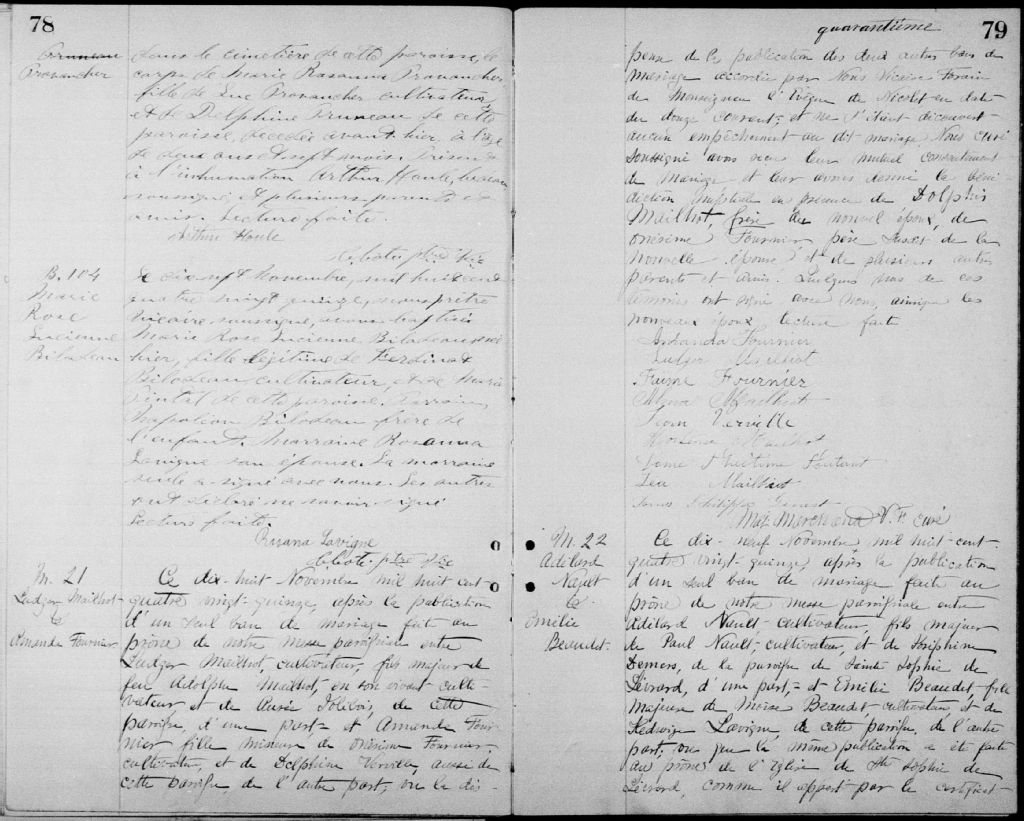 78
Pruneau
Provancher
dans le cimetière de cette paroisse, le
corps de Marie Rosanna Provancher
fille de Luc Provancher cultivateur
et de Delphine Pruneau de cette
paroisse, décédée avant-hier à l'age
de deux ans et sept mois. Présents
à l'inhumation Arthur Houle, bedeau
soussigné, et plusieurs parents et
amis. Lecture faite.
Arthur Houle
ptre Vic
B. 104
Marie
Rose
Lucienne
Bilodeau
Le dix sept Novembre, mil huit cent
quatre vingt quinze, nous prêtre
vicaire soussigné, avons baptisé
Marie Rose Lucienne Bilodeau née
hier, fille légitime de Ferdinand
Bilodeau, cultivateur, et de Marie
Pintal de cette paroisse. Parrain,
Napoléon Bilodeau frère de
l'enfant. Marraine Rosanna
Lavigne son épouse. La marraine
seule a signé avec nous. Les autres
ont déclaré ne savoir signé
Lecture faite.
Rosana Lavigne
ptre Vic
M. 21
Ludger Mailhot
&
Amanda Fournier
Ce dix-huit Novembre mil huit cent
quatre vingt-quinze, après la publication
d'un seul ban de mariage fait au
prône de notre messe paroissiale entre
Ludger Mailhot, cultivateur, fils majeur de
feu Adolphe Mailhot, en son vivant culti-
vateur, et de Ausée Jolibois, de cette
paroisse, d'une part- et Amanda Four
nier fille mineure de Onésime Fournier,
cultivateur, et de Delphine Verville, aussi de
cette paroisse de l'autre part, vu la dis-
quarantième
79
pense de la publication des deux autres bans de
mariage accordée par Nous Vicaire Forain
de Monseigneur l'Evêque de Nicolet en date
du douze courant; et ne s'étant découvert
aucun empêchement au dit mariage, Nous Curé
soussigné avons reçu leur mutuel consentement
de mariage et leur avons donné la béné-
diction nuptiale en présence de Dolphis
Mailhot, frère du nouvel époux, de
Onésime Fournier, père de la
nouvelle épouse, et de plusieurs autres
parents et amis. Quelques uns de ces
témoins ont signé avec nous, ainsi que les
nouveaux époux. lecture faite
Amanda Fournier
Ludger Mailhot
Fournier
Alma Mailhot
Verville
Mailhot
Léa Mailhot
Philippe
Marchand V.F. curé
M. 22
Adélard
Nault
&
Emélie
Beaudet
Ce dix-neuf Novembre, mil huit-cent-
quatre vingt-quinze, après la publication
d'un seul ban de mariage faite au
prône de notre messe paroissiale entre
Adélard Nault cultivateur, fils majeur
de Paul Nault, cultivateur, et de Joséphine
Demers, de la paroisse de Sainte Sophie de
Lévrard, d'une part,- et Emélie Beaudet, fille
majeure de Moïse Beaudet, cultivateur, et de
Hedwige Lavigne, de cette paroisse, de l'autre
part; vu que la même publication a été faite
au prône de l'Eglise de Ste Sophie de
Lévrard, comme il appert par le certificat-